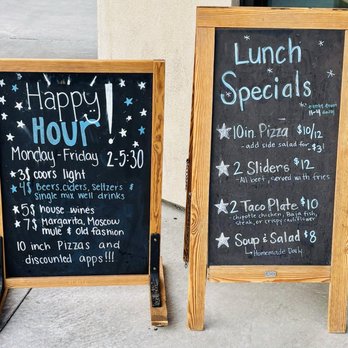 Happy
HOUR!
Monday-Friday 2-5:30
3$ coors light
4$ Beers, ciders, Sellzers &
Single mix well drinks
5$ house wines
7$ Margarita, Moscow
mule & old fashion
10 inch Pizzas and
discounted apps!!!
Lunch
Specials
11-4
10in Pizza $10/12
- add side salad for
$3!
2 Sliders $12
- All beef, served with fries
2 Taco Plate $10
chipotle chicken, Baja fish,
steak, or crispy cauliflower
Soup & Salad $8
Homemade Daily